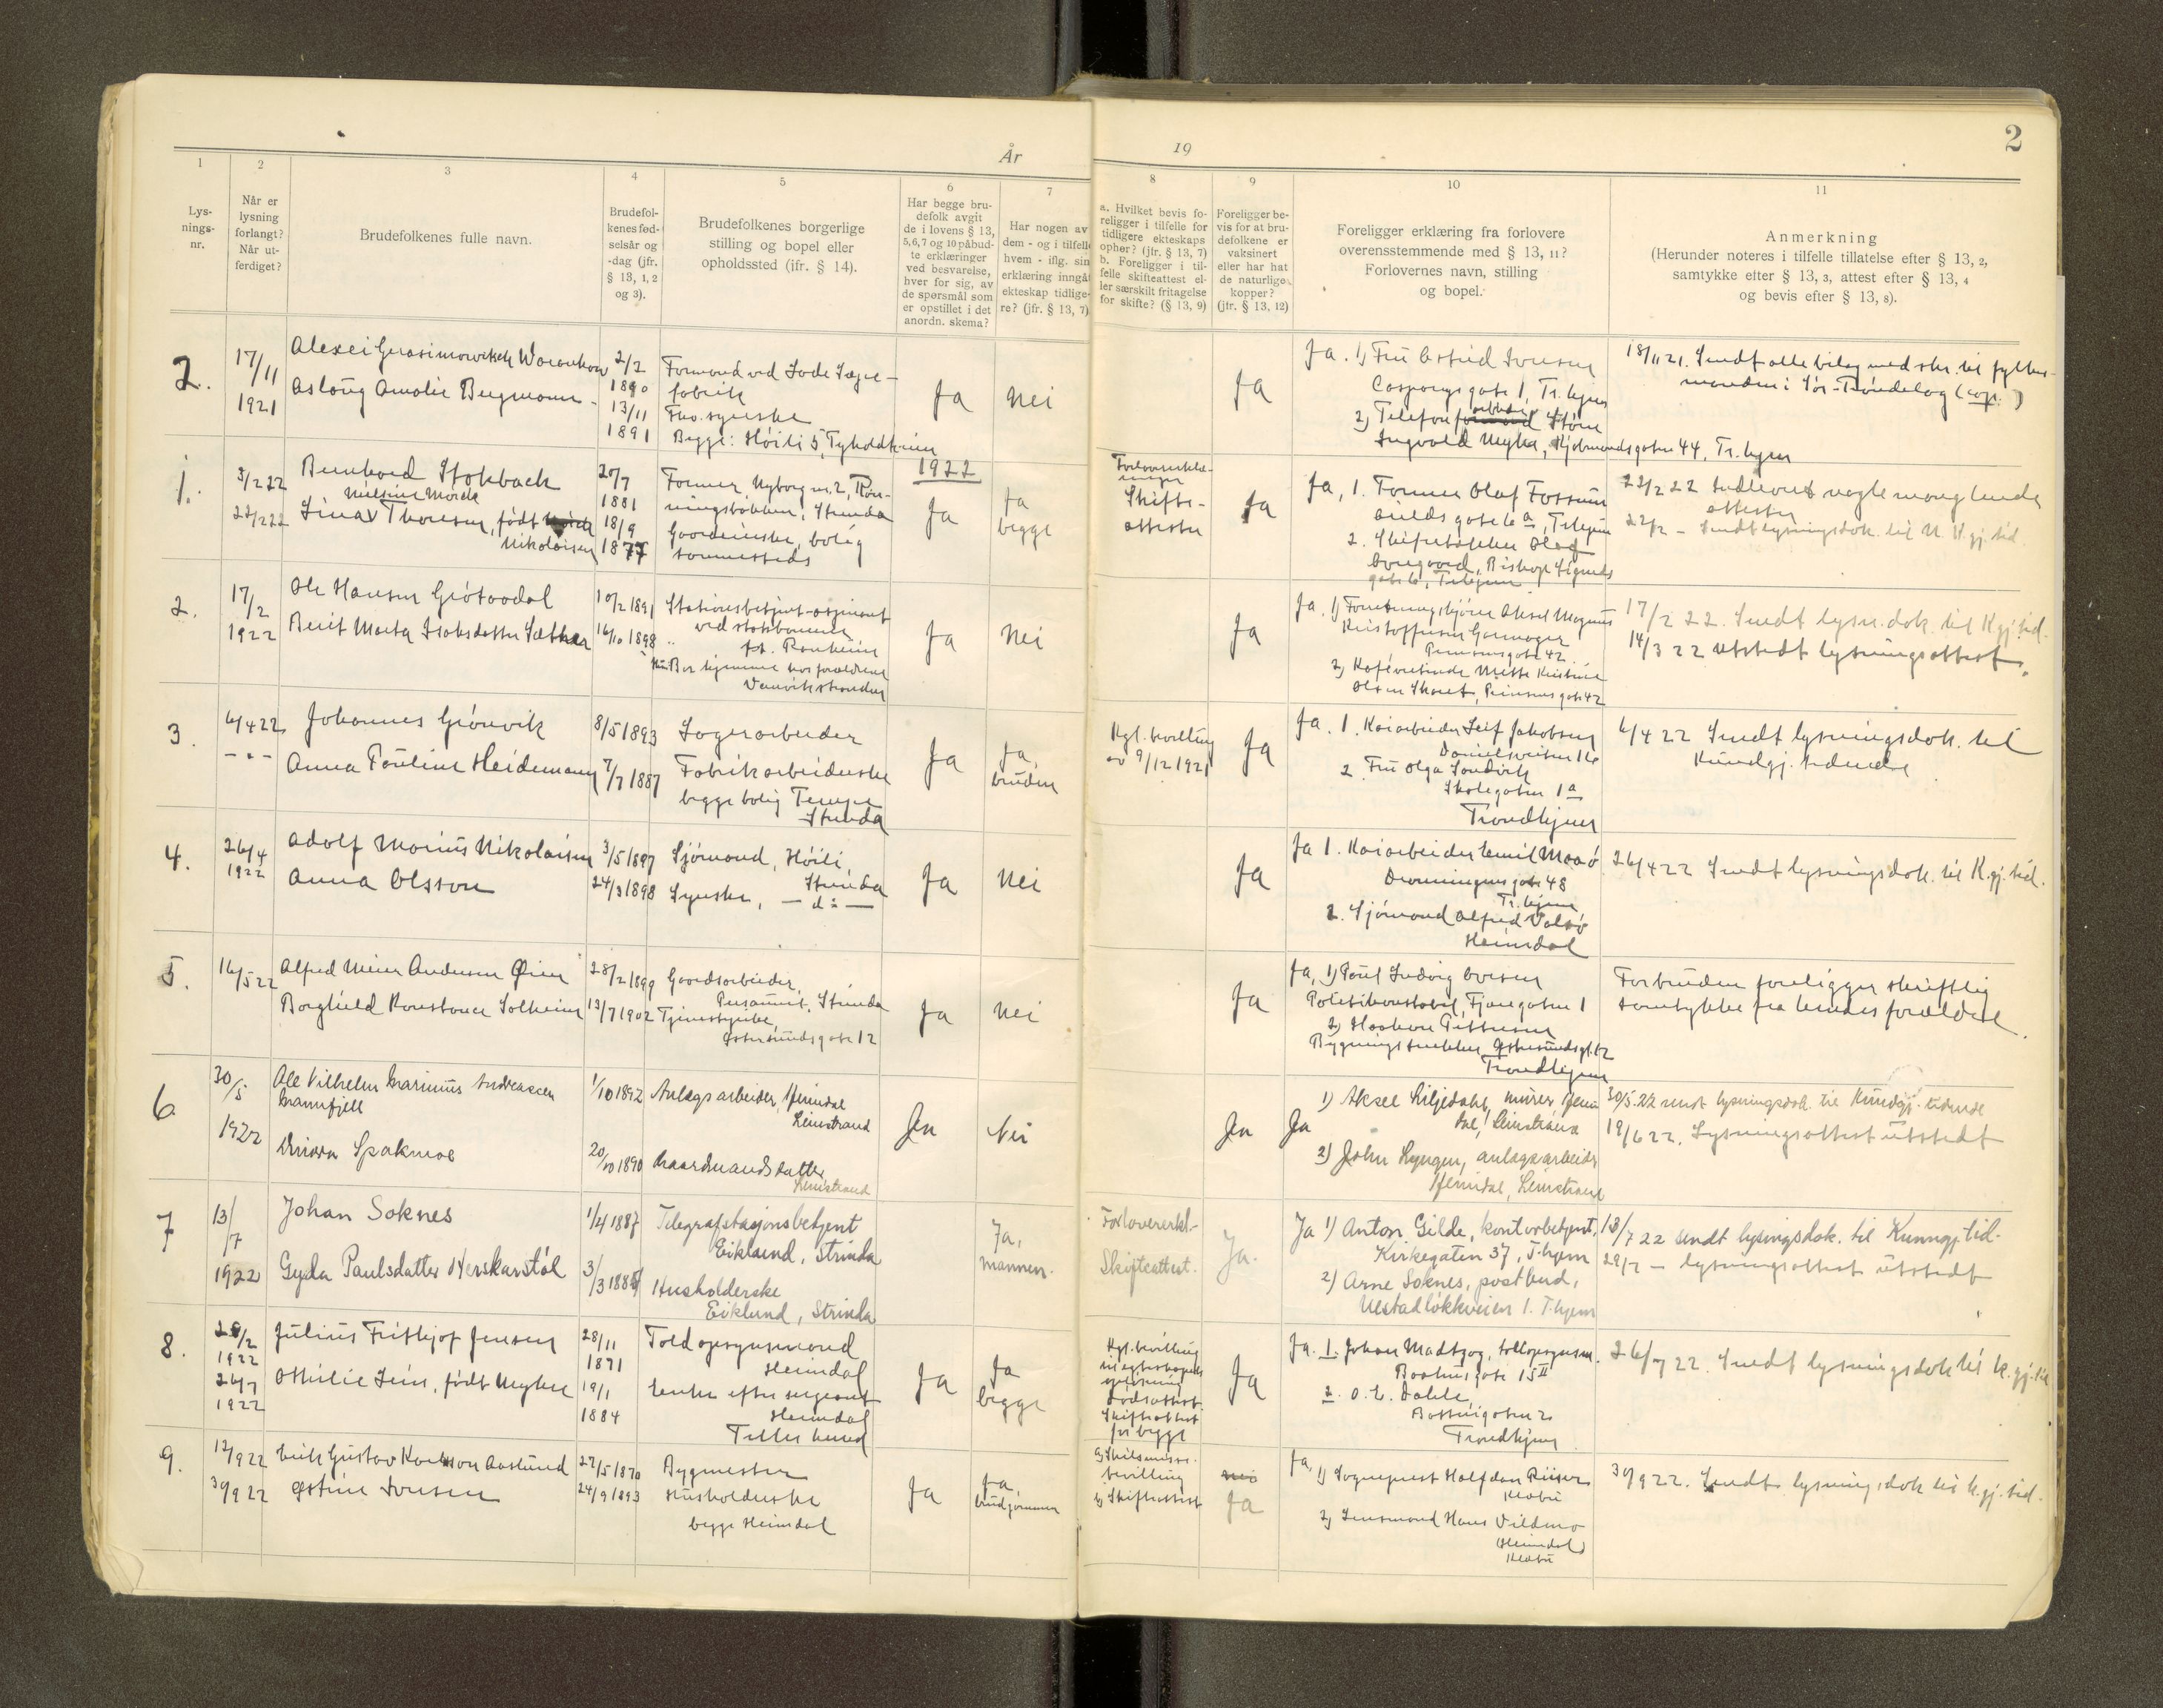 År
19
2
1
2
3
4
5
6
7
8
9
10
11
Lys-
nings-
nr.
Når er
lysning
forlangt?
Når ut-
ferdiget?
Brudefolkenes fulle navn.
Brudefol-
kenes fød-
selsår og
-dag (jfr.
§ 13, 1, 2
og 3).
Brudefolkenes borgerlige
stilling og bopel eller
opholdssted (ifr. § 14).
Har begge bru-
defolk avgit
de i lovens § 13,
5, 6, 7 og 10 påbud-
te erklæringer
ved besvarelse,
hver for sig, av
de spørsmål som
er opstillet i det
anordn. skema?
Har nogen av
dem - og i tilfelle
hvem - iflg. sin
erklæring inngåt
ekteskap tidlige-
re? (jfr. § 13, 7)
a. Hvilket bevis fo-
religger i tilfelle for
tidligere ekteskaps
ophør? (jfr. § 13, 7)
b. Foreligger i til-
felle skifteattest el-
ler særskilt fritagelse
for skifte? (§ 13, 9)
Foreligger be-
vis for at bru-
defolkene er
vaksinert
eller har hat
de naturlige
kopper?
(jfr. § 13, 12)
Foreligger erklæring fra forlovere
overensstemmende med § 13, 11?
Forlovernes navn, stilling
og bopel.
Anmerkning
(Herunder noteres i tilfelle tillatelse efter § 13, 2,
samtykke efter § 13, 3, attest efter § 13, 4
og bevis efter § 13, 8).
2.
17/11
1921
Aslaug Amalie Bergmann
2/2
1890
13/11
1891
Formand ved Lade
fabrik
Frk. syerske
Begge: Høili 5, Tyholdt
Ja
Nei
Ja
Ja. 1) Fru Astrid Iversen
gate 1, Tr.hjem
2) Telefon
Ingvald Myhr, Kjøbmandsgaten 44, Tr.hjem
18/11 21. Sendt alle bilag med skr. til fylkes-
manden i Sør-Trøndelag
1922
1.
3/2 22
22/2 22
Bernhard Stokbach
Nielsine Mørch
Lina Thoresen, født
Nikolaisen
20/7
1881
18/9
1877
Former, Nyborg nr. 2, Røn-
ningsbakken, Strinda
bolig
sammesteds
Ja
Ja
begge
Skifte-
attester
Ja
Ja, 1. Former Olaf Fossum
gate 6 a, Tr.hjem
2. Olaf
Borgaard, Bishop Sigurds
gate 6, Tr.hjem
22/2 22
attester
22/2 - Sendt lysningsdok. til N. K.gj.tid.
2.
17/2
1922
Ole Hansen Grøtaadal
Berit Marta Isaksdatter Sæther
10/2 1891
16/10 1898
Stationsbetjent-aspirant
ved statsbanerne
Ranheim
Bor hjemme hos forældrene
Ja
Nei
Ja
Ja. 1) Forretningsfører Aksel Magnus
Kristoffersen
Prinsensgate 42
2) Mette Kristine
Olsen Prinsensgate 42
17/2 22. Sendt lysn.dok. til K.gj.tid.
14/3 22 utstedt lysningsattest.
3.
6/4 22
- " -
Johannes Grønvik
Anna Pauline Heidemann
8/5 1893
7/7 1887
Lagerarbeider
Fabrikarbeiderske
begge bolig Tempe
Strinda
Ja
Ja,
bruden
Kgl. bevilling
av 9/12 1921
Ja
Ja. 1. Kaiarbeider Leif Jakobsen
Danielsveiten 16
2. Fru Olga Sandvik
Skolegaten 1 a
Trondhjem
6/4 22 Sendt lysningsdok. til
Kundgj. tidende.
4.
26/4
1922
Adolf Marius Nikolaisen
Anna Olsson
3/5 1897
24/3 1898
Sjømand, Høili,
Strinda
Syerske, - d: -
Ja
Nei
Ja
Ja 1. Kaiarbeider Emil Maaø
Dronningensgate 48
Tr.hjem
2. Sjømand Alfred Valsø
Heimdal
26/4 22 Sendt lysningsdok. til K.gj.tid.
5.
16/5 22
Alfred Meier Andersen Øien
Borghild Konstance Solheim
28/2 1899
13/7 1902
Gaardsarbeider,
Strinda
Tjenestepike,
Østersundsgate 12
Ja
Nei
Ja
Ja, 1) Paul Ludvig Iversen
Politikonstabel, Fjæregaten 1
2) Haakon Pettersen
Bygningssnekker Østersundsgt. 12
Trondhjem
For bruden foreligger skriftlig
samtykke fra hendes forældre.
6
30/5
1922
Ole Vilhelm Marinius Andreassen
Mannfjell
Spakmoe
1/10 1892
20/10 1890
Anlægsarbeider, Heimdal
Leinstrand
Gaardmandsdatter,
Leinstrand
Ja
Nei
Ja
Ja
1) Aksel Liljedahl, murer Heim
dal, Leinstrand
2) John Lyngen, anlægsarbeider
Heimdal, Leinstrand
30/5.22 sendt lysningsdok. til Kundgj. tidende
19/6 22. Lysningsattest utstedt
7
13/7
1922
Johan Soknes
Gyda Paulsdatter Herskarstøl
1/4 1887
3/3 1885
Telegrafstasjonsbetjent
Eiklund, Strinda
Husholderske
Eiklund, Strinda
Ja,
mannen.
Forlovererkl.
Skifteattest.
Ja.
Ja 1) Anton Gilde, kontorbetjent,
Kirkegaten 37, T.hjem
2) Arne Soknes, postbud,
Ulstadløkkveien 1. T.hjem
13/7 22 sendt lysingsdok. til Kunngj.tid.
29/7 - lysningsattest utstedt
8.
1922
26/7
1922
Julius Fritjof Jensen
Othilie Lein, født Myhre
28/11
1871
19/1
1884
Toldopsynsmand
Heimdal
Enke efter sergeant
Heimdal
Tiller herred
Ja
Ja
begge
Kgl. bevilling
til egteskapets
opløsning
Dødsattest
Skifteattest
for begge
Ja
Ja. 1. Johan Madtzog, tollopsynsm.
Baahusgate 15 II
2. O. E. Dahle
Trondhjem
26/7 22. Sendt lysningsdok til K.gj.tid
9.
12/9 22
30/9 22
Erik Gustav Karlsson Aaslund
Østine Iversen
27/5 1870
24/9 1893
Bygmester
Husholderske
begge Heimdal
Ja
Ja,
brudgommen
a) Skilsmisse-
bevilling
b) Skifteattest
nei
Ja
Ja,
1) Sogneprest Halfdan Riiser
Klæbu
2) Lensmand Hans Vildmo
(Heimdal)
Klæbu
30/9 22. Sendt lysningsdok til K.gj.tid.